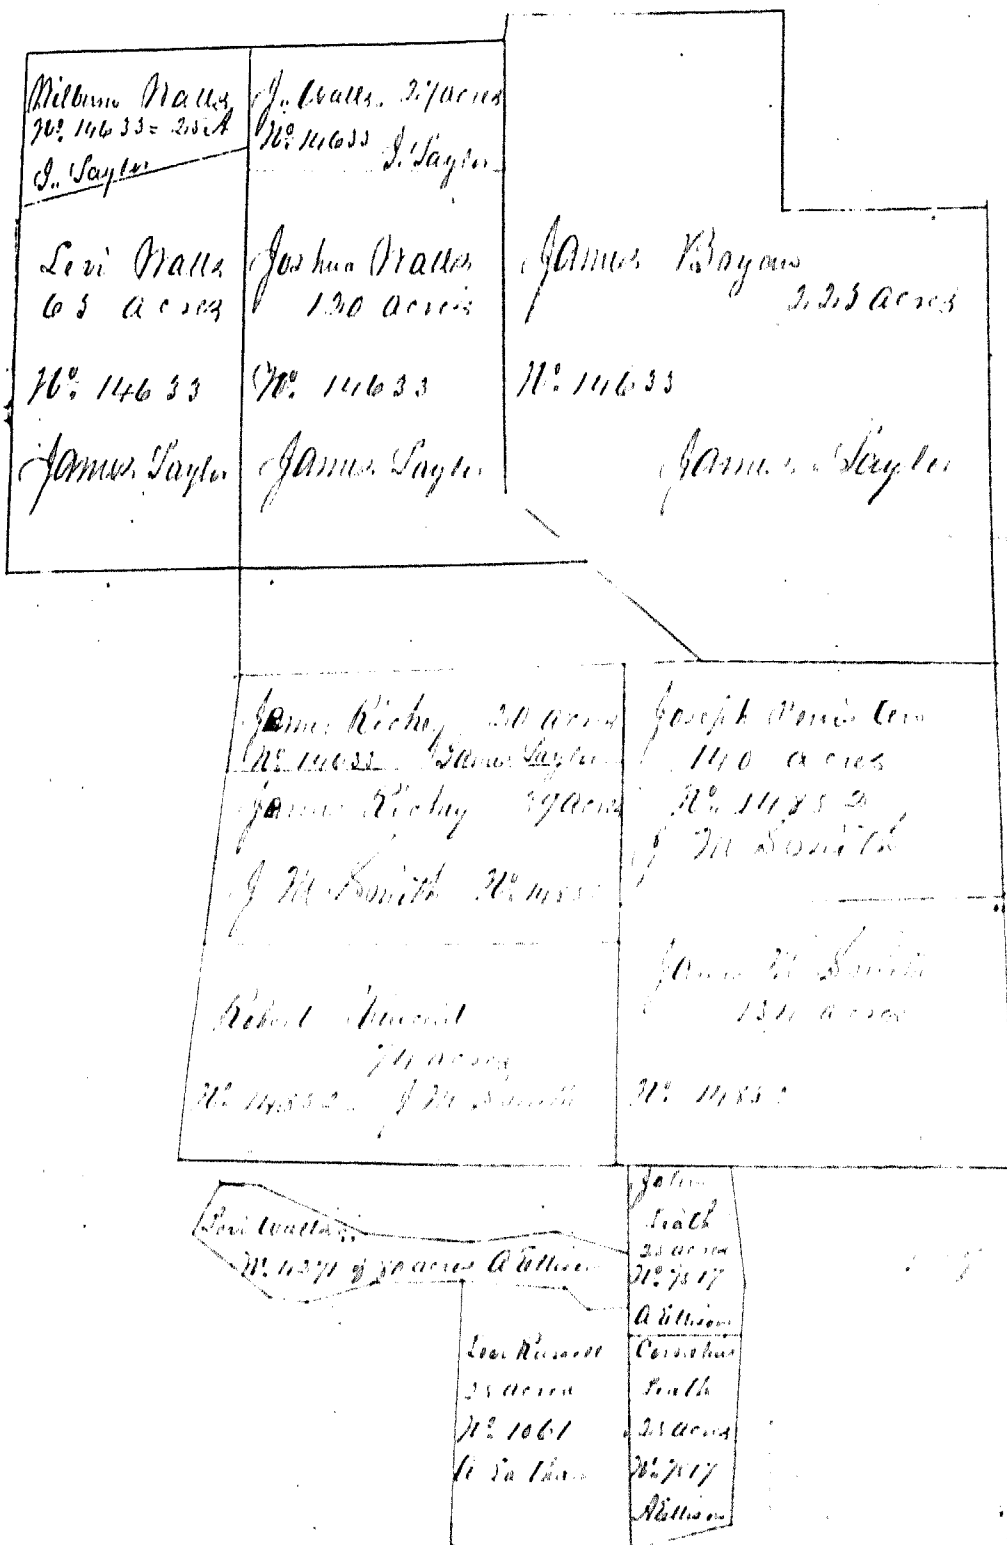 Wilburn Walls
No. 14633 = 25 A
J. Taylor
J. Walls. 27 acres
No. 14633
J. Taylor
Levi Walls
63 acres
No. 14633
James Taylor
Joshua Walls
130 acres
No. 14633
James Taylor
James
223 acres
No. 14633
James Taylor
James Richey 20 acres
No. 14633 James Taylor
James Richey 39 acres
J M Smith No.
Joseph
140 acres
No. 14832
J M Smith
Robert
74 acres
No. 14832 J M Smith
James M Smith
134 acres
No. 1483
Levi Walls
No. 4271 of 80 acres A Ellison
John
25 acres
No. 7517
A Ellison
Levi
25 acres
No. 1061
Cornelius
25 acres
No. 7517
A Ellison